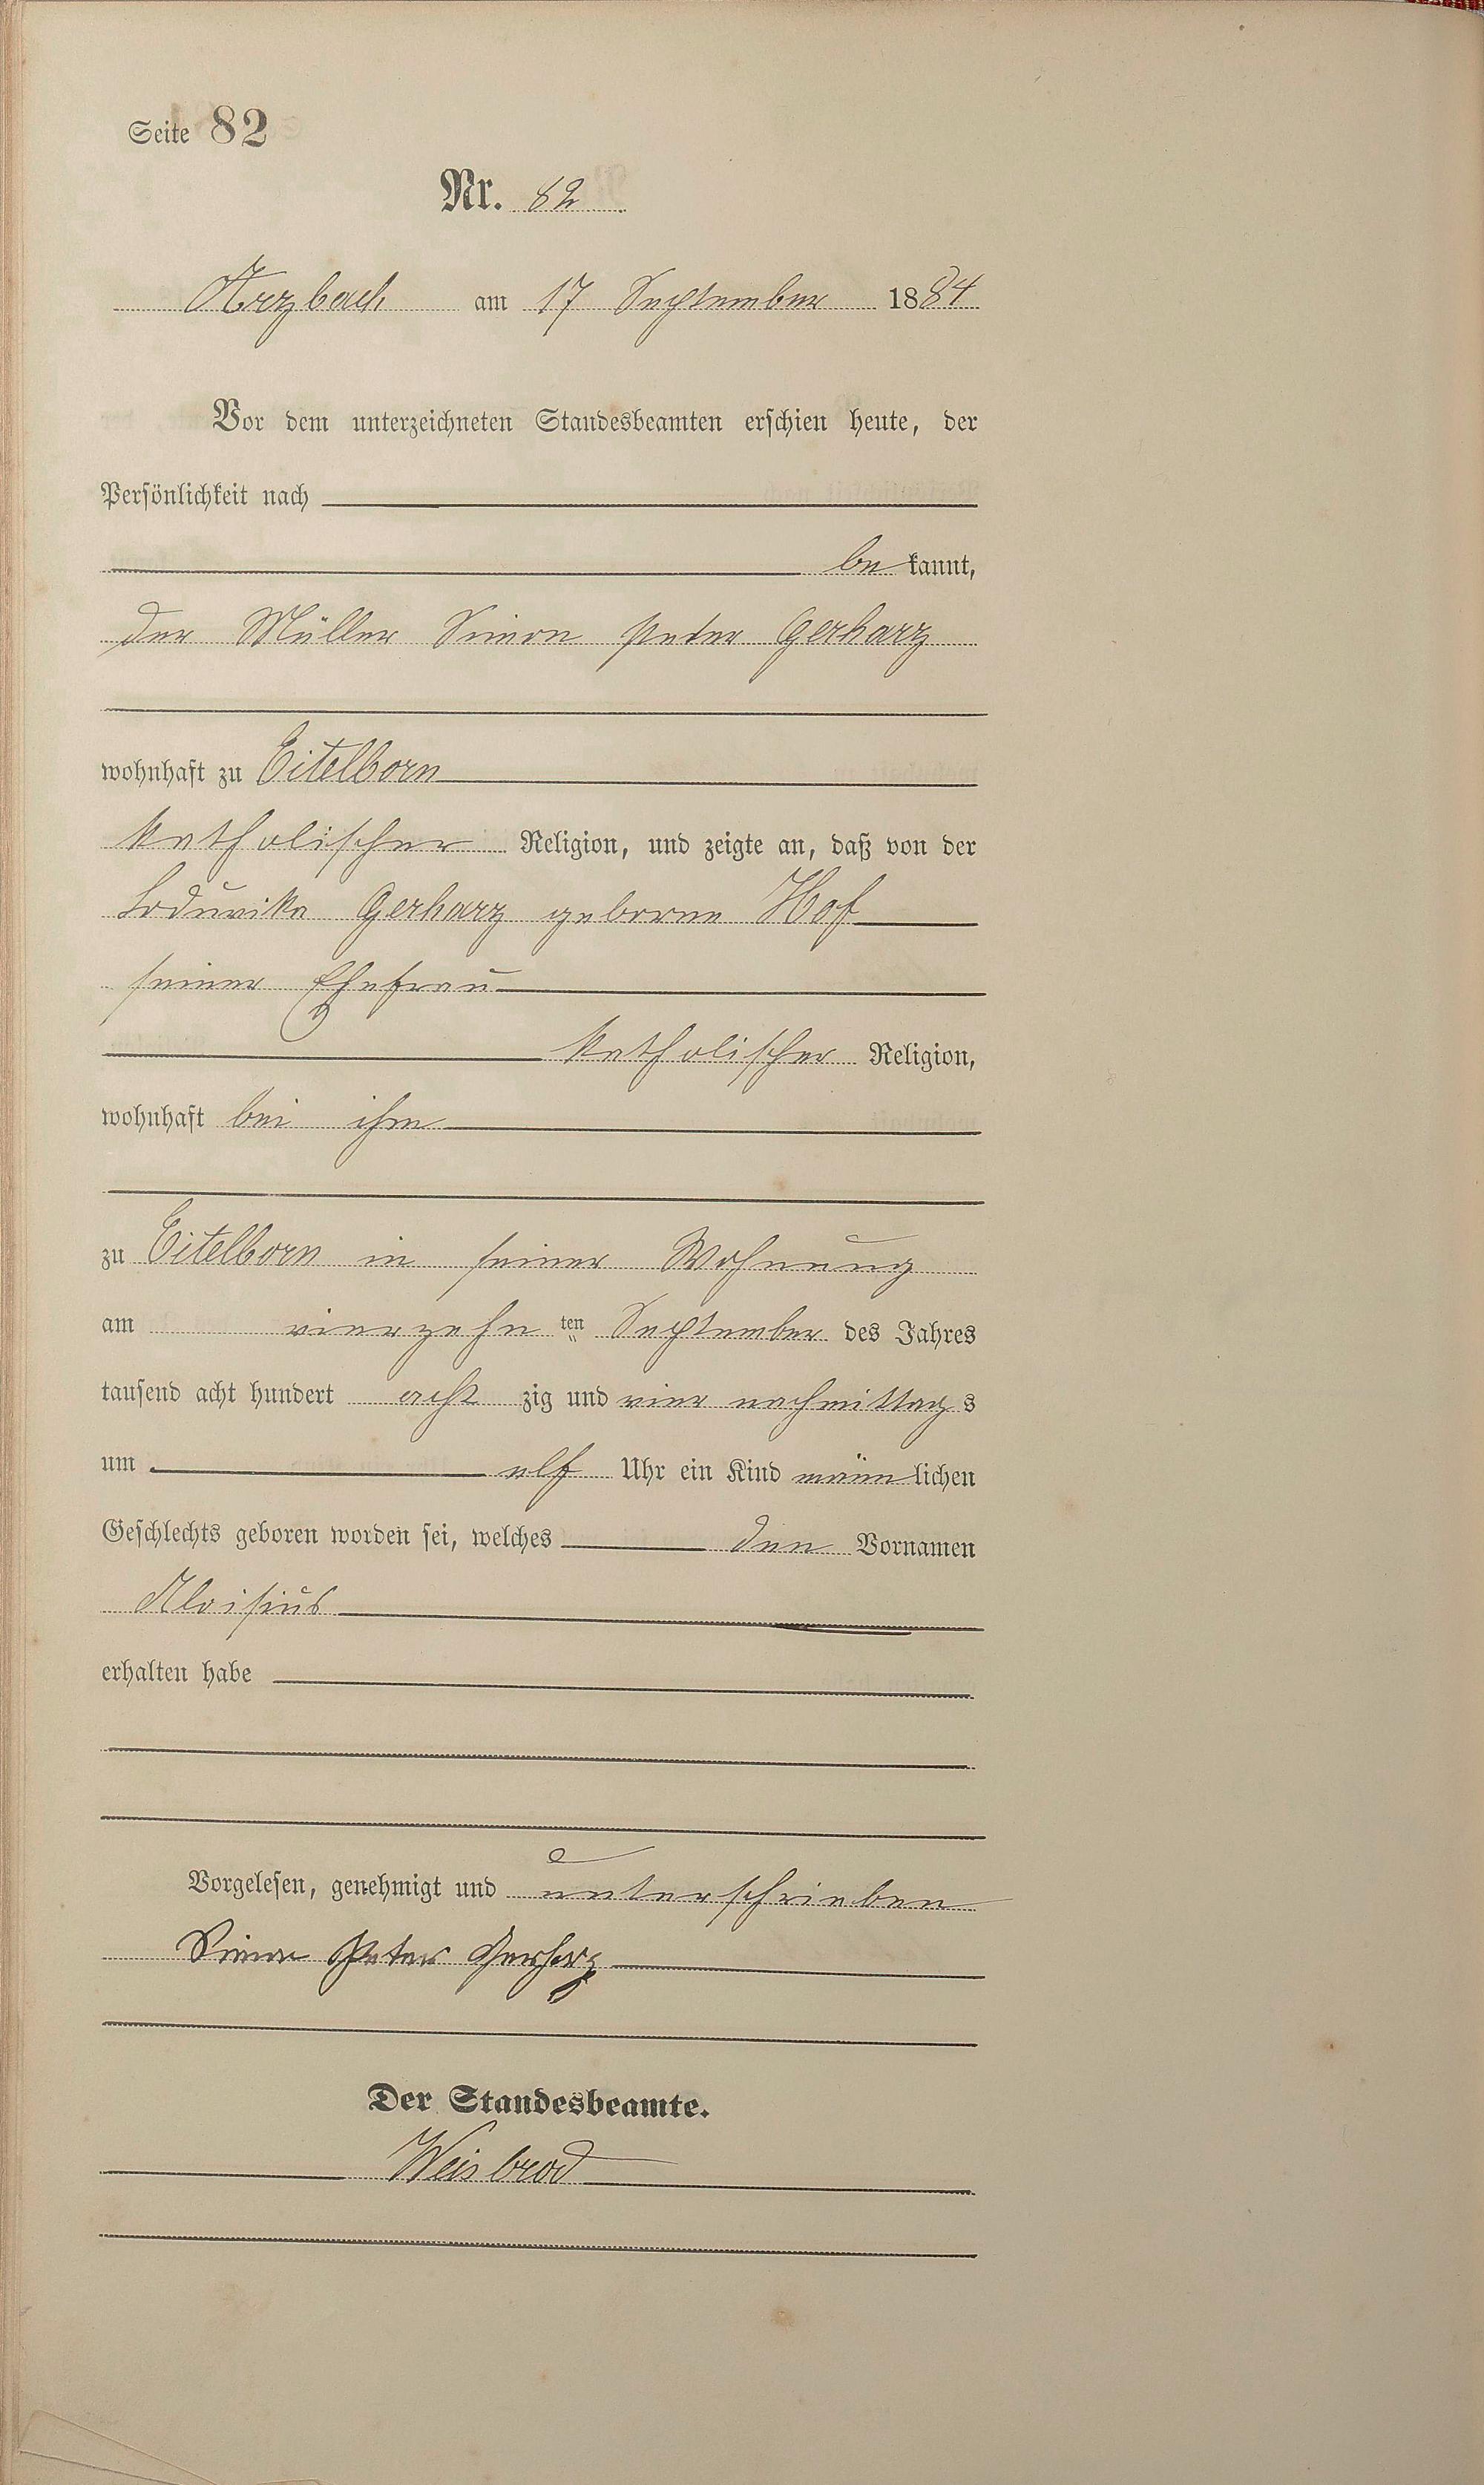 Seite 82
Nr. 82
Arzbach am 17 September 1884
Vor dem unterzeichneten Standesbeamten erschien heute, der
Persönlichkeit nach
be kannt,
der Müller Simon Peter Gerharz
wohnhaft zu Eitelborn
katholischer Religion, und zeigte an, daß von der
Loduvika Gerharz geborne Hof
seiner Ehefrau
katholischer Religion,
wohnhaft bei ihm
zu Eitelborn in seiner Wohnung
am vierzehn ten September des Jahres
tausend acht hundert acht zig und vier nachmittag s
um elf Uhr ein Kind männ lichen
Geschlechts geboren worden sei, welches den Vornamen
Aloisius
erhalten habe
Vorgelesen, genehmigt und unterschrieben
Simon Peter Gerharz
Der Standesbeamte.
Weisbrod